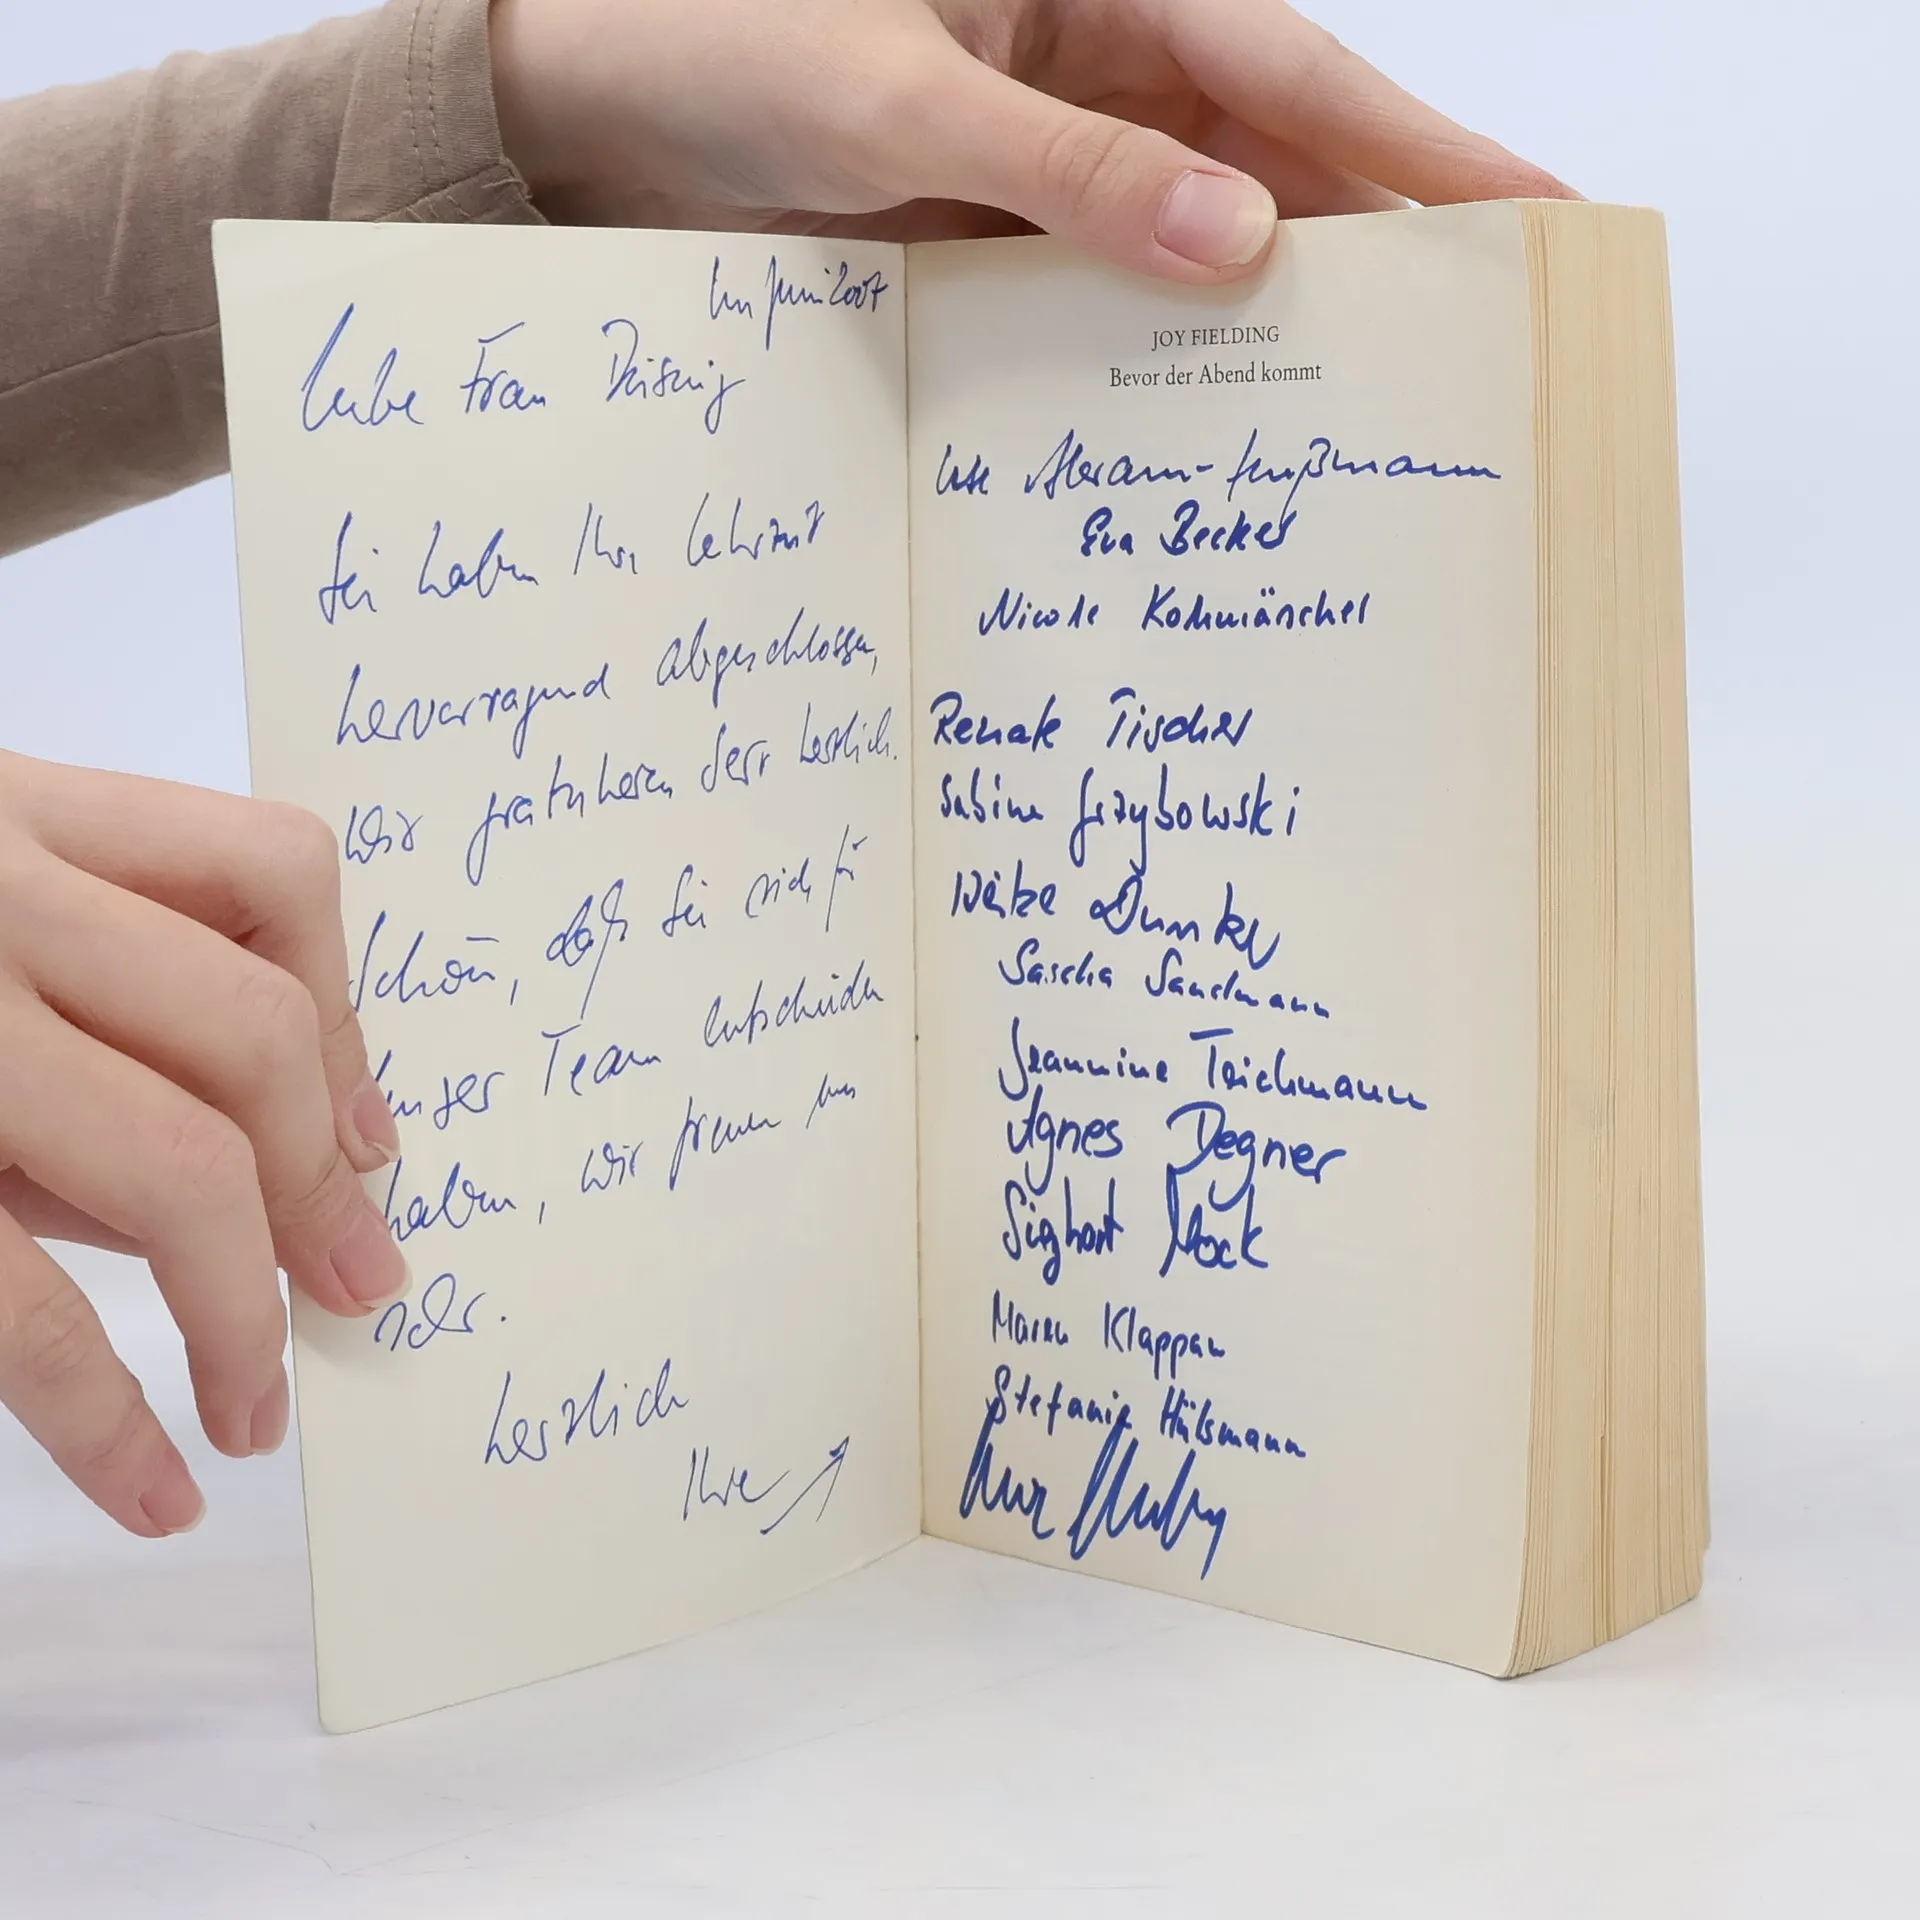 Im Juni 2007
Liebe Frau
Sie haben Ihre Lehrzeit
hervorragend abgeschlossen,
wir gratulieren sehr herzlich.
Schön, daß Sie sich für
unser Team entschieden
haben, wir freuen uns
sehr.
Herzlich
Ihre
JOY FIELDING
Bevor der Abend kommt
Ute
Eva Becker
Nicole
Renate Tischer
Sabine Grzybowski
Sascha Sandmann
Jeannine Teichmann
Agnes Degner
Sighart Mock
Maren
Stefanie Hülsmann